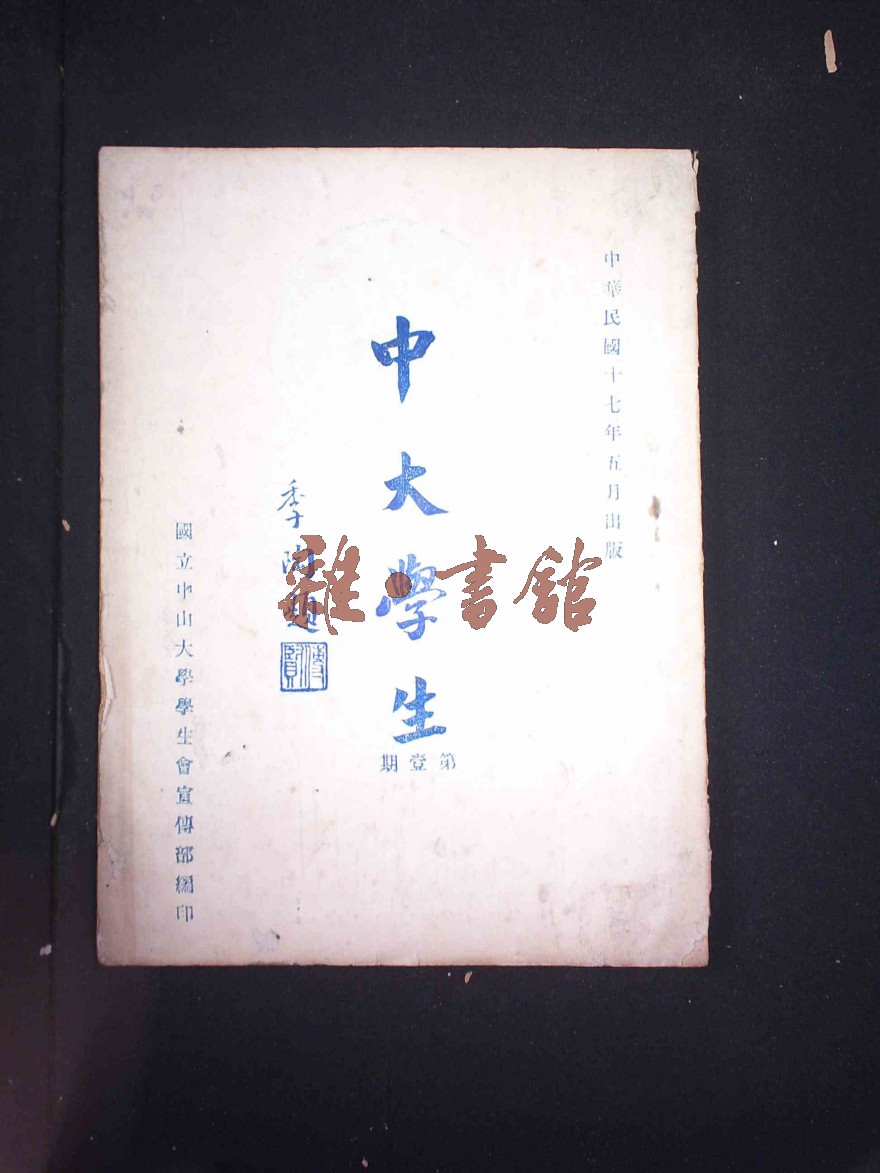 中華民國十七年五月出版
中大學生
第壹期
季陶題
傳賢
國立中山大學學生會宣傳部編印
雜·書館